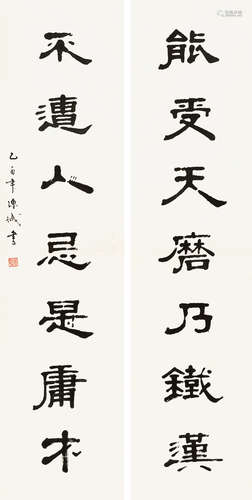 能受天磨乃鐵漢
不遭人忌是庸才
乙酉年陳誠書